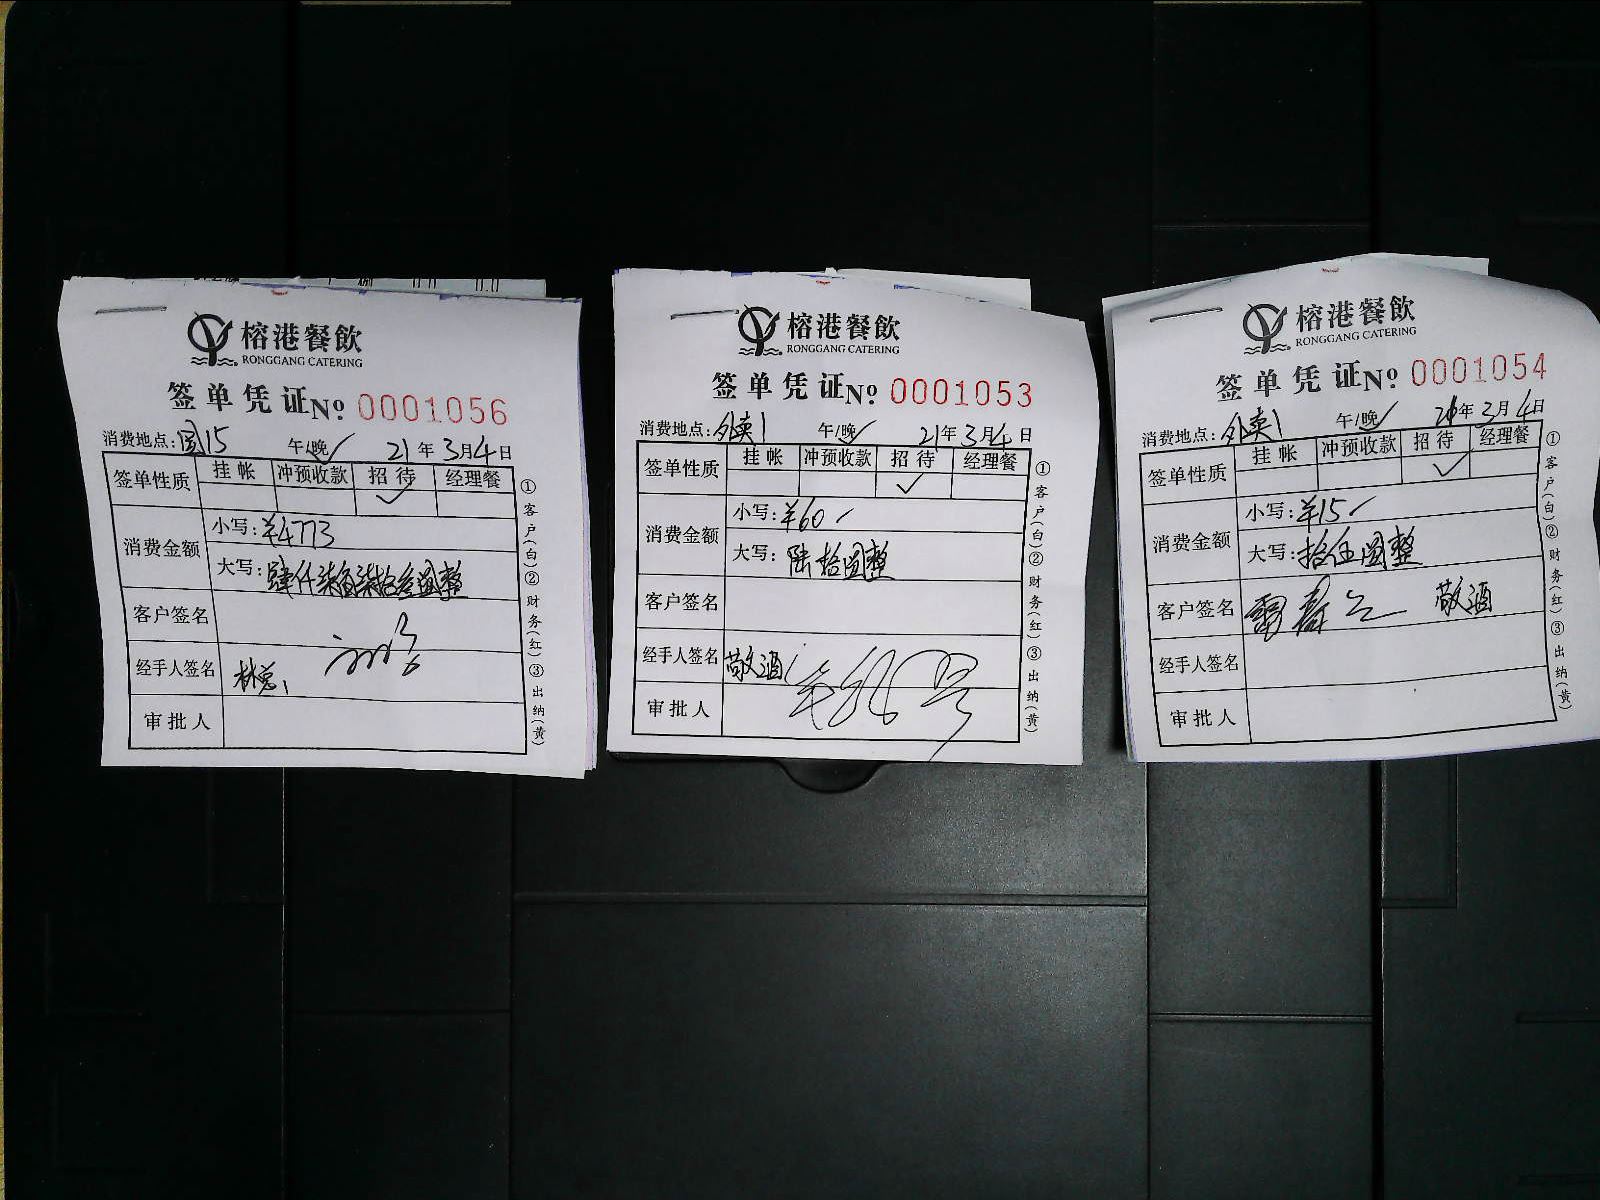 榕港餐飲
RONGGANG CATERING
签单凭证 No. 0001056
消费地点: 国15 午/晚✓ 21年3月4日
签单性质 挂帐 冲预收款 招待 经理餐
✓
消费金额
小写: ¥4773
大写: 肆仟柒佰柒拾叁圆整
客户签名
经手人签名 林总
审批人
①客户(白)②财务(红)③出纳(黄)
榕港餐飲
RONGGANG CATERING
签单凭证 No. 0001053
消费地点: 外卖1 午/晚✓ 21年3月4日
签单性质 挂帐 冲预收款 招待 经理餐
✓
消费金额
小写: ¥60
大写: 陆拾圆整
客户签名
经手人签名 敬酒
审批人
①客户(白)②财务(红)③出纳(黄)
榕港餐飲
RONGGANG CATERING
签单凭证 No. 0001054
消费地点: 外卖1 午/晚✓ 21年3月4日
签单性质 挂帐 冲预收款 招待 经理餐
✓
消费金额
小写: ¥15
大写: 拾伍圆整
客户签名 敬酒
经手人签名
审批人
①客户(白)②财务(红)③出纳(黄)